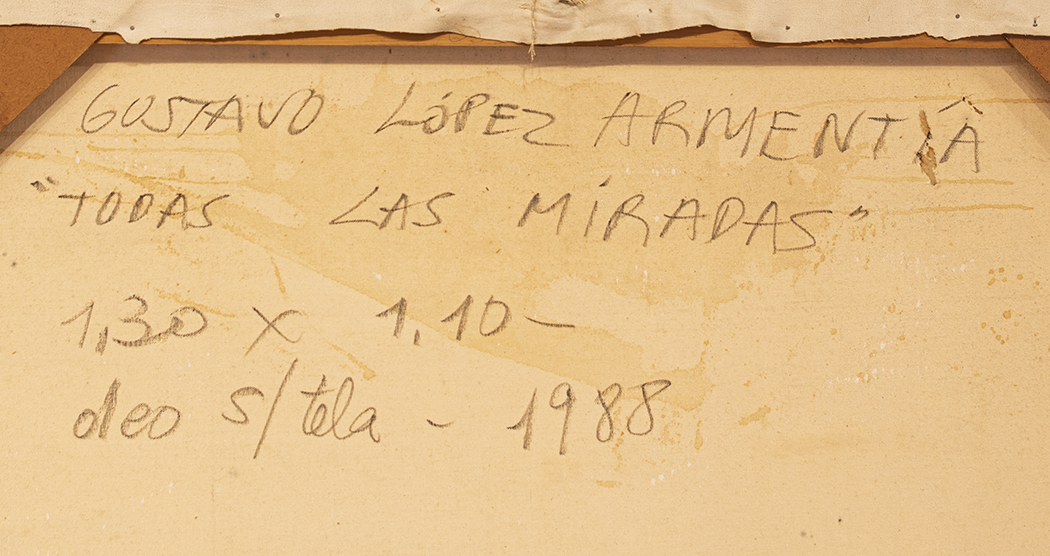 GUSTAVO LÓPEZ ARMENTÍA
"TODAS LAS MIRADAS"
1,30 x 1,10 -
óleo s/tela - 1988